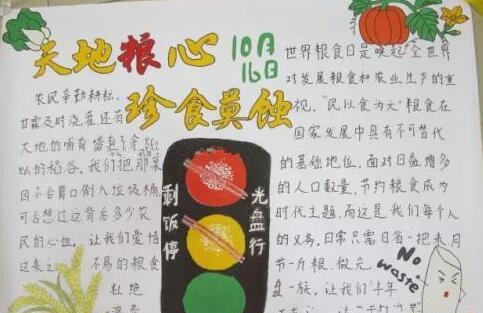 天地粮心
10月
16日
珍食莫蚀
农民辛勤耕耘,
甘霖及时浇灌还有
大地的哺育
的稻谷。我们把那菜
因不合胃口倒入垃圾桶
可否想过这背后多少农
民的心血。让我们爱惜
这来之不易的粮食
杜绝
浪费
剩饭停
光盘行
世界粮食日是唤起全世界
对发展粮食和农业生产的重
视。"民以食为天"粮食在
国家发展中具有不可替代
的基础地位。面对日益增多
的人口数量,节约粮食成为
时代主题,而这是我们每个人
的义务。日常只需日省一把米月
节一斤粮、做光
盘一族。让我们"丰年
No
waste